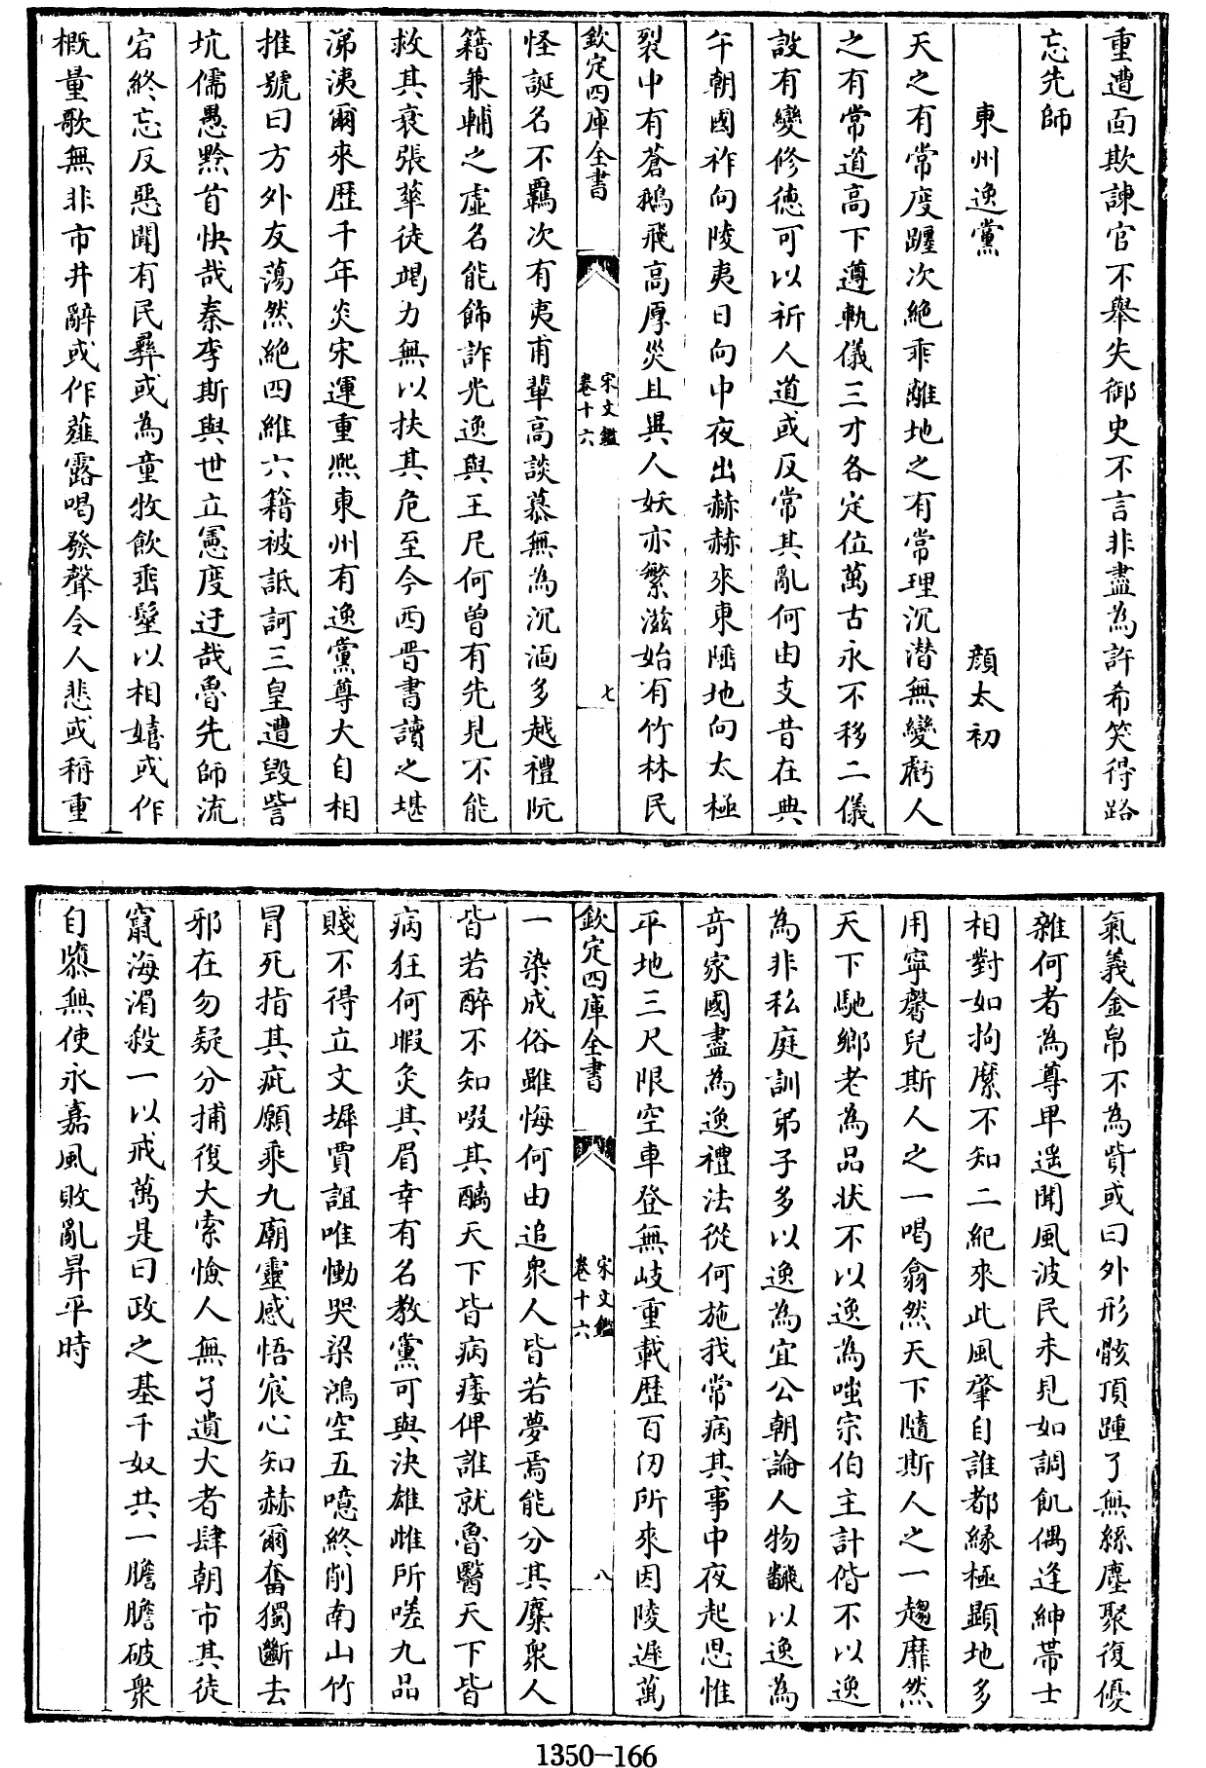 重遭面欺諫官不舉失御史不言非盡為許希笑得路
忘先師
東州逸黨 顔太初
天之有常度躔次絶乖離地之有常理沉潛無變虧人
之有常道高下遵軌儀三才各定位萬古永不移二儀
設有變修德可以祈人道或反常其亂何由支昔在典
午朝國祚向陵夷日向中夜出赫赫來東陲地向太極
裂中有蒼鵝飛高厚災且異人妖亦繁滋始有竹林民
欽定四庫全書 宋文鑑 卷十六 七
怪誕名不羈次有夷甫輩高談慕無為沉湎多越禮阮
籍兼輔之虛名能飾詐光逸與王尼何曽有先見不能
救其衰張華徒竭力無以扶其危至今西晋書讀之堪
涕洟爾來歴千年炎宋運重熙東州有逸黨尊大自相
推號曰方外友蕩然絶四維六籍被詆訶三皇遭毀訾
坑儒愚黔首快哉秦李斯與世立憲度迂哉魯先師流
宕終忘反惡聞有民彛或為童牧飲垂髫以相嬉或作
概量歌無非市井辭或作薤露唱發聲令人悲或稱重
氣義金帛不為貲或曰外形骸頂踵了無絲塵聚復優
雜何者為尊卑遥聞風波民未見如調飢偶逢紳帶士
相對如拘縻不知二紀來此風肇自誰都緣極顯地多
用寜馨兒斯人之一唱翕然天下隨斯人之一趨靡然
天下馳鄉老為品狀不以逸為嗤宗伯主計偕不以逸
為非私庭訓弟子多以逸為宜公朝論人物翻以逸為
奇家國盡為逸禮法從何施我常病其事中夜起思惟
平地三尺限空車登無岐重載歴百仞所來因陵遲萬
欽定四庫全書 宋文鑑 卷十六 八
一染成俗雖悔何由追衆人皆若夢焉能分其麋衆人
皆若醉不知啜其醨天下皆病痿俾誰就魯醫天下皆
病狂何暇灸其眉幸有名教黨可與決雄雌所嗟九品
賤不得立文墀賈誼唯慟哭梁鴻空五噫終削南山竹
冒死指其疵願乘九廟靈感悟宸心知赫爾奮獨斷去
邪在勿疑分捕復大索憸人無孑遺大者肆朝市其徒
竄海湄殺一以戒萬是曰政之基千奴共一膽膽破衆
自隳無使永嘉風敗亂昇平時
1350-166